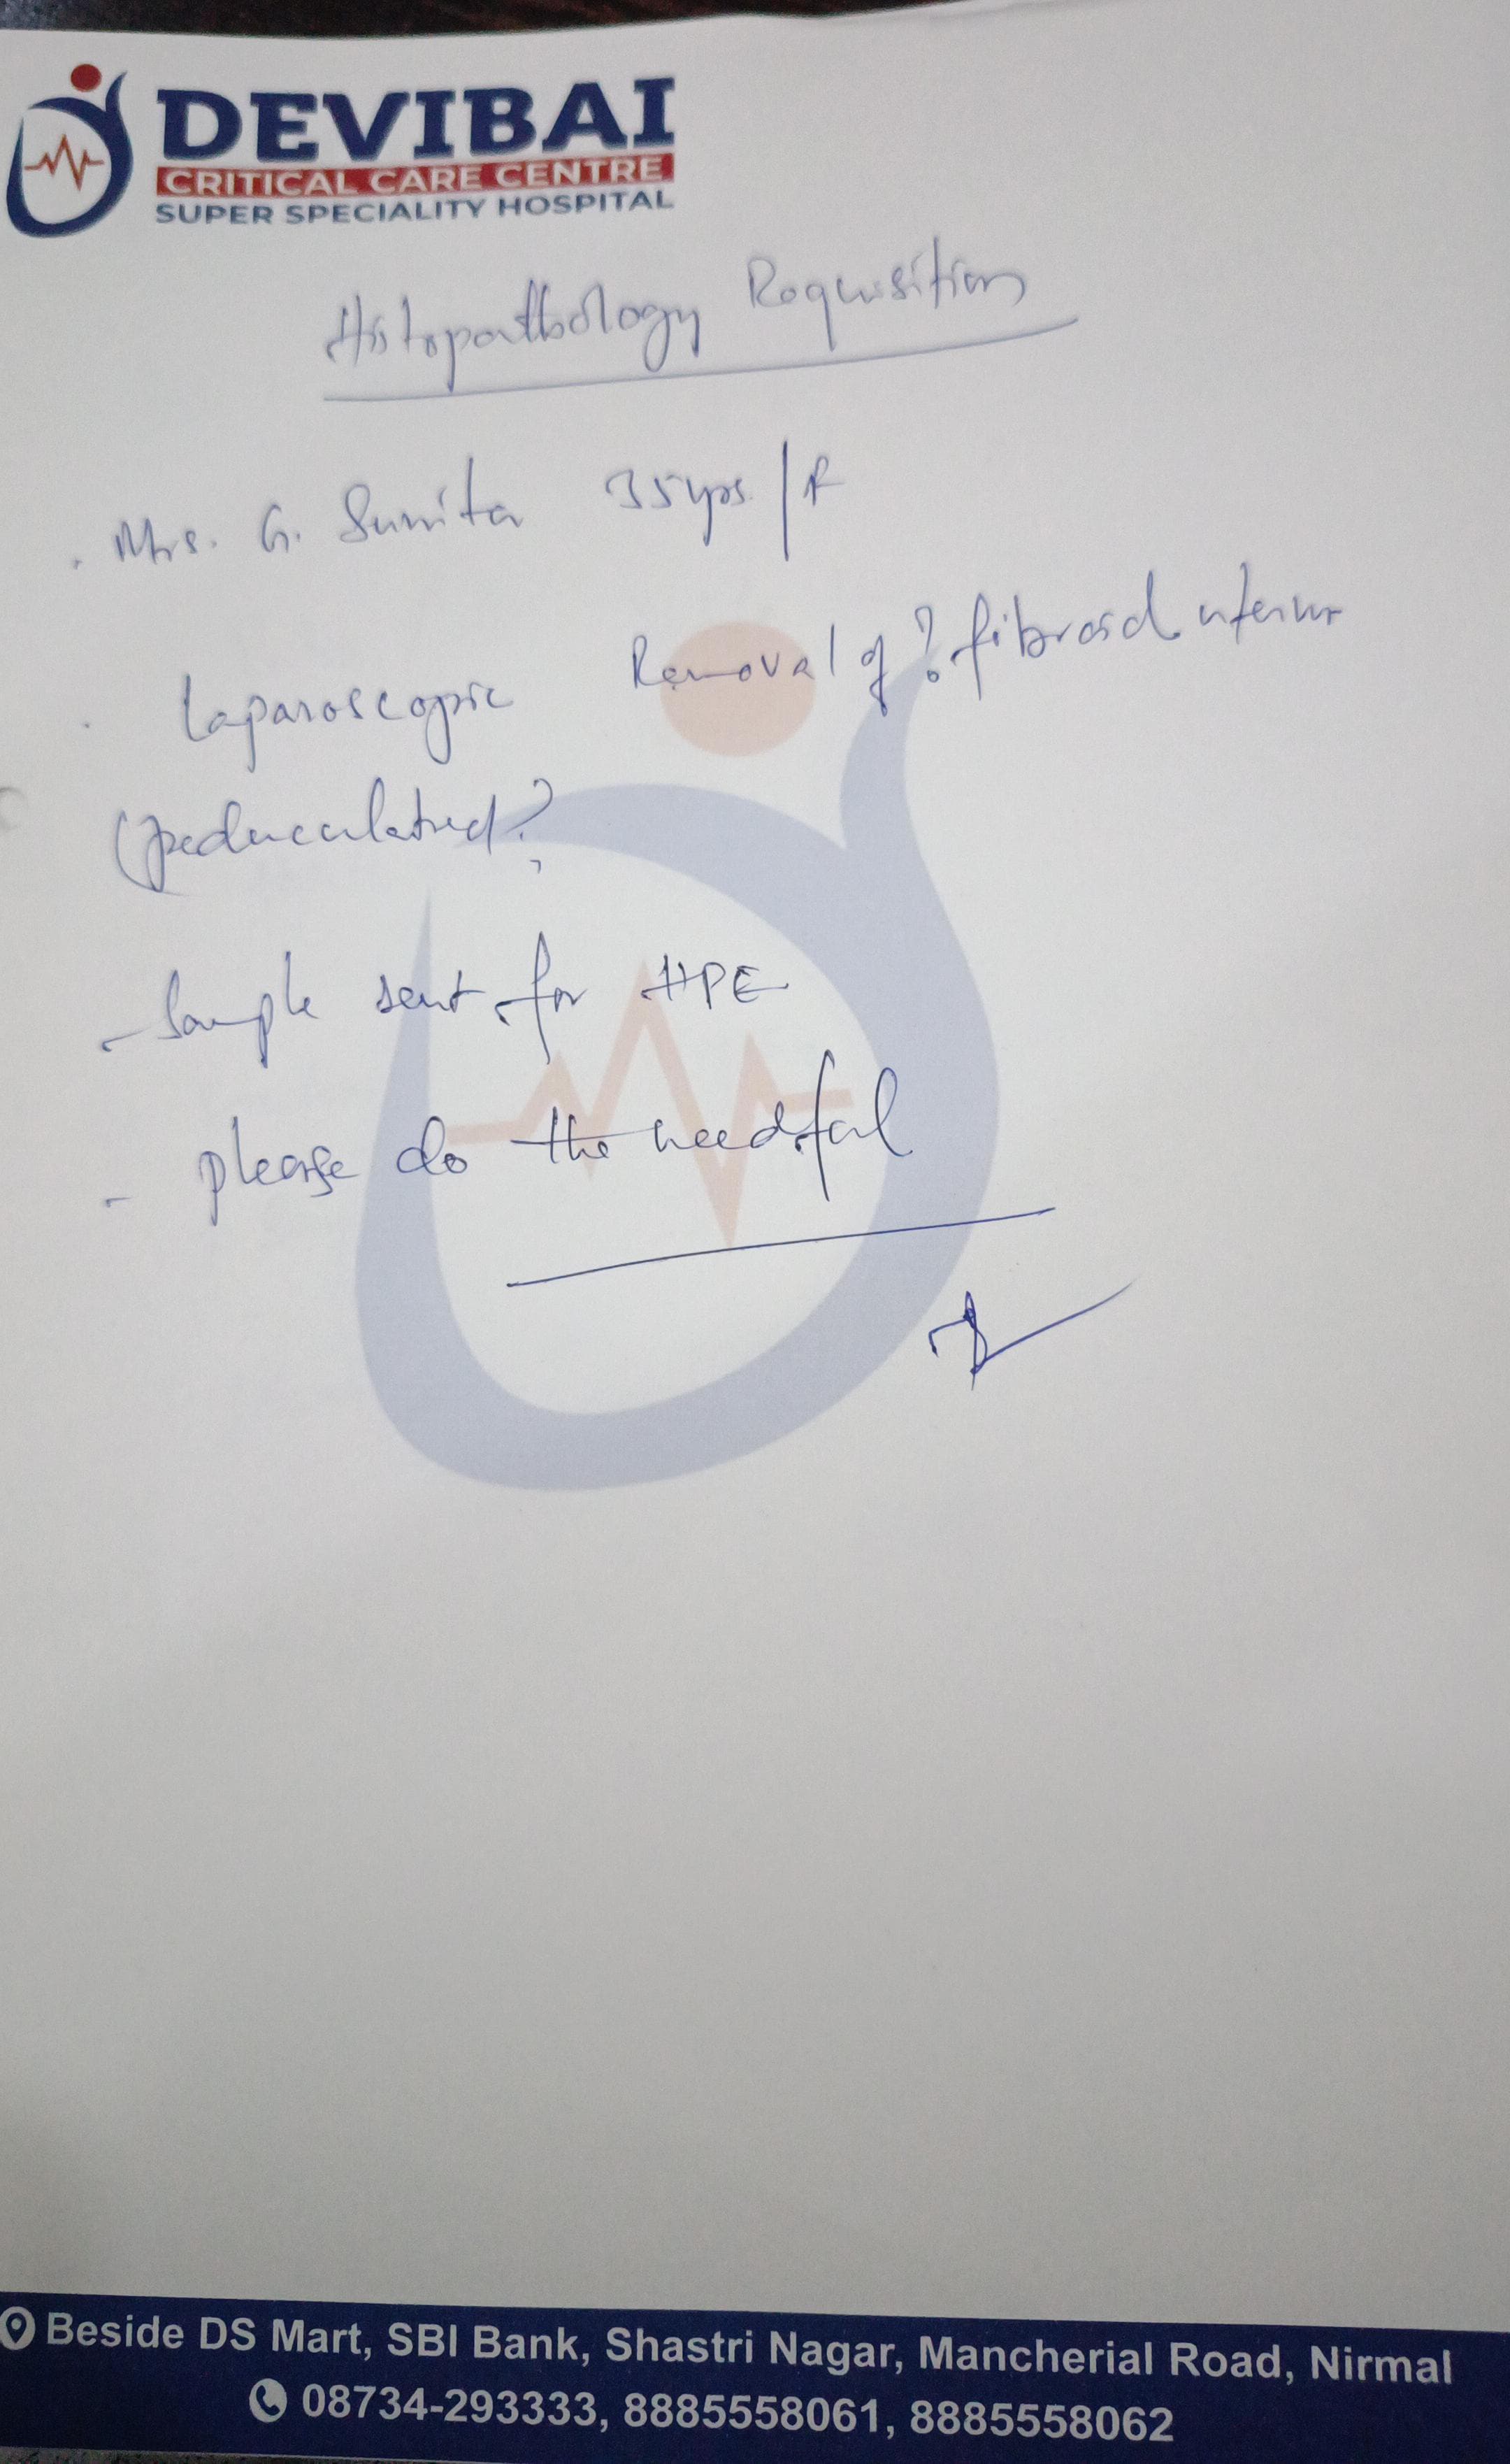 DEVIBAI
CRITICAL CARE CENTRE
SUPER SPECIALITY HOSPITAL
Histopathology Requisition
. Mrs. G. Sunita 35yrs / F
. Laparoscopic Removal of ? fibroid uterus
(pedunculated?
- Sample sent for HPE
- please do the needful
Beside DS Mart, SBI Bank, Shastri Nagar, Mancherial Road, Nirmal
08734-293333, 8885558061, 8885558062